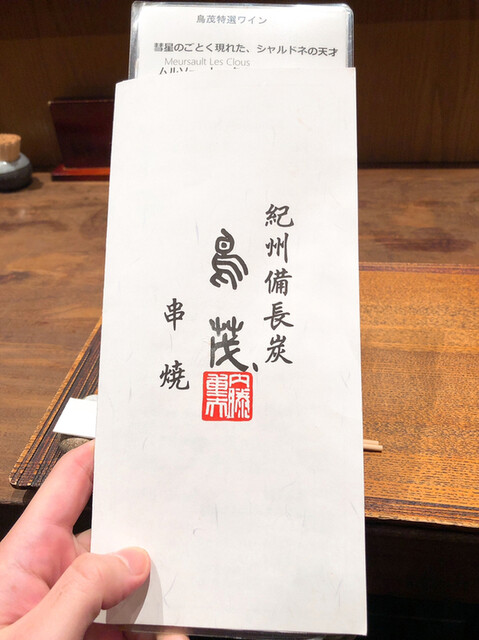 鳥茂特選ワイン
彗星のごとく現れた、シャルドネの天才
Meursault Les Clous
紀州備長炭
鳥茂
串焼